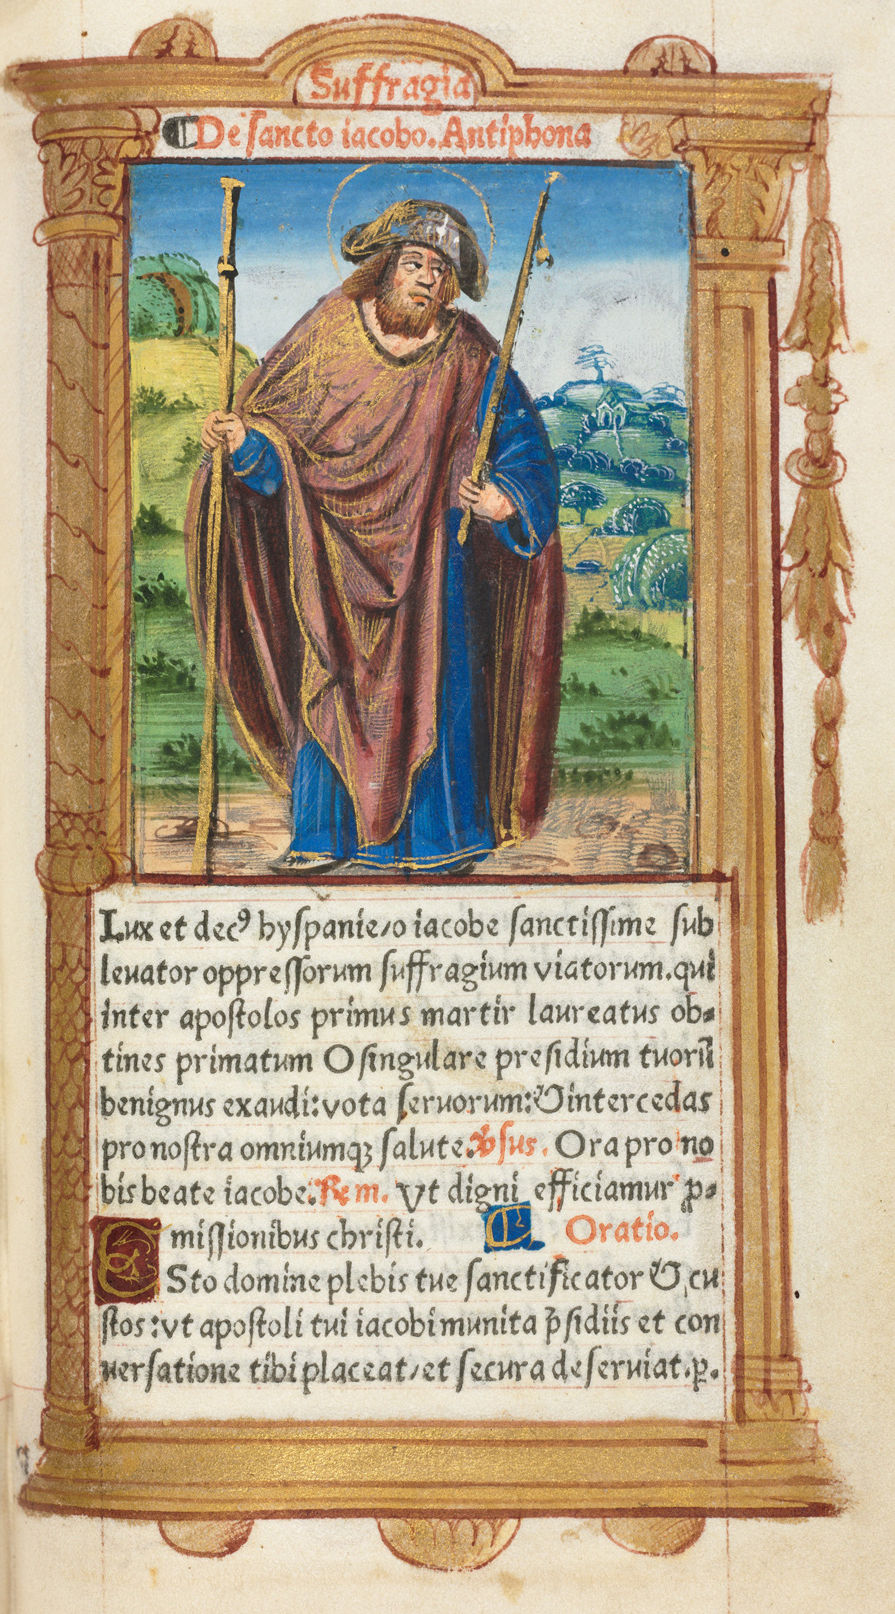 Suffragia
De sancto iacobo. Antiphona
Lux et decꝰ hyspanie/o iacobe sanctissime sub
leuator oppressorum suffragium viatorum.qui
inter apostolos primus martir laureatus ob⸗
tines primatum O singulare presidium tuoꝝ
benignus exaudi:vota seruorum:⁊ intercedas
pro nostra omniumqꝫ salute. ℣sus. Ora pro no
bis beate iacobe. Rem. Vt digni efficiamur ꝓ⸗
missionibus christi. Oratio.
ESto domine plebis tue sanctificator ⁊ cu
stos:vt apostoli tui iacobi munita p̄sidiis et con
uersatione tibi placeat/et secura deseruiat.ꝑ.